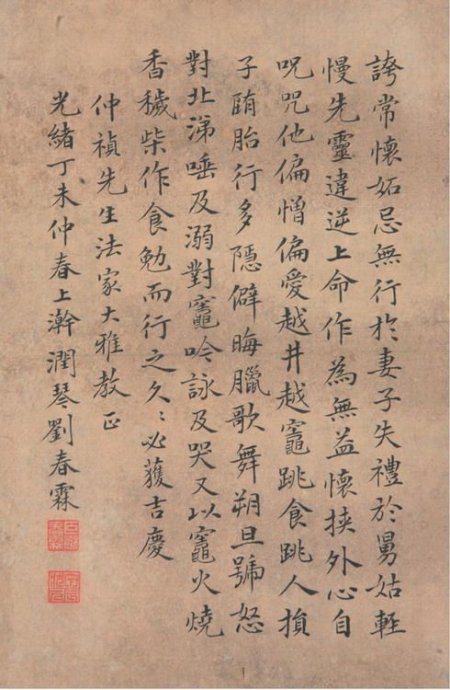 誇常懷妬忌無行於妻子失禮於舅姑輕
慢先靈違逆上命作為無益懷挾外心自
呪咒他偏憎偏愛越井越竈跳食跳人損
子墮胎行多隱僻晦臘歌舞朔旦號怒
對北涕唾及溺對竈吟詠及哭又以竈火燒
香穢柴作食勉而行之久〻必獲吉慶
仲禎先生法家大雅教正
光緒丁未仲春上澣潤琴劉春霖